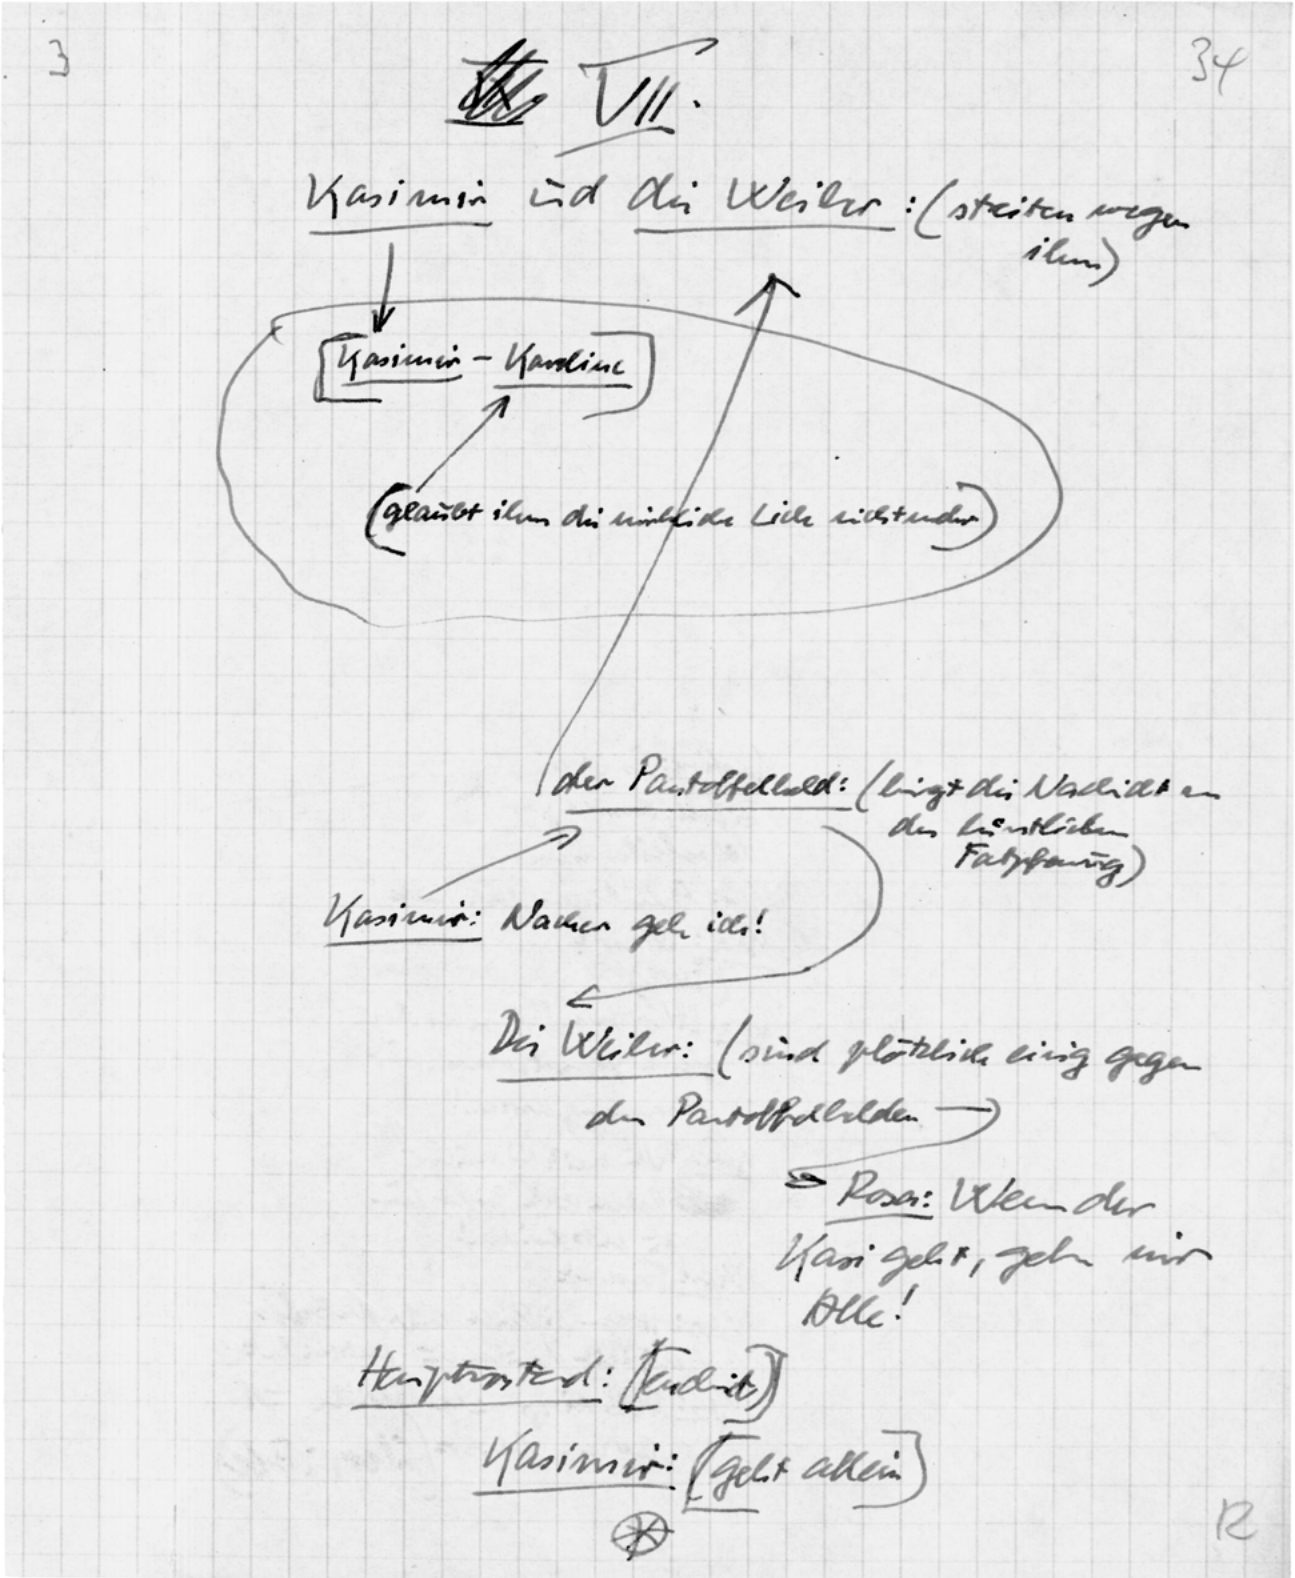 3
34
VII.
Kasimir und die Weiber: (streiten wegen
ihm)
[Kasimir – Karoline]
(glaubt ihm die wirkliche Liebe nicht mehr)
der Pantoffelheld: (bringt die Nachricht von
der künstlichen
Kasimir: Nacher geh ich!
Die Weiber: (sind plötzlich einig gegen
den Pantoffelhelden
Rosa: Wenn der
Kasi geht, gehn wir
Alle!
(geht allein)
Kasimir:
12